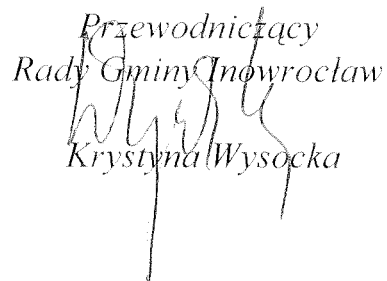 Przewodniczący
Rady Gminy Inowrocław
Krystyna Wysocka